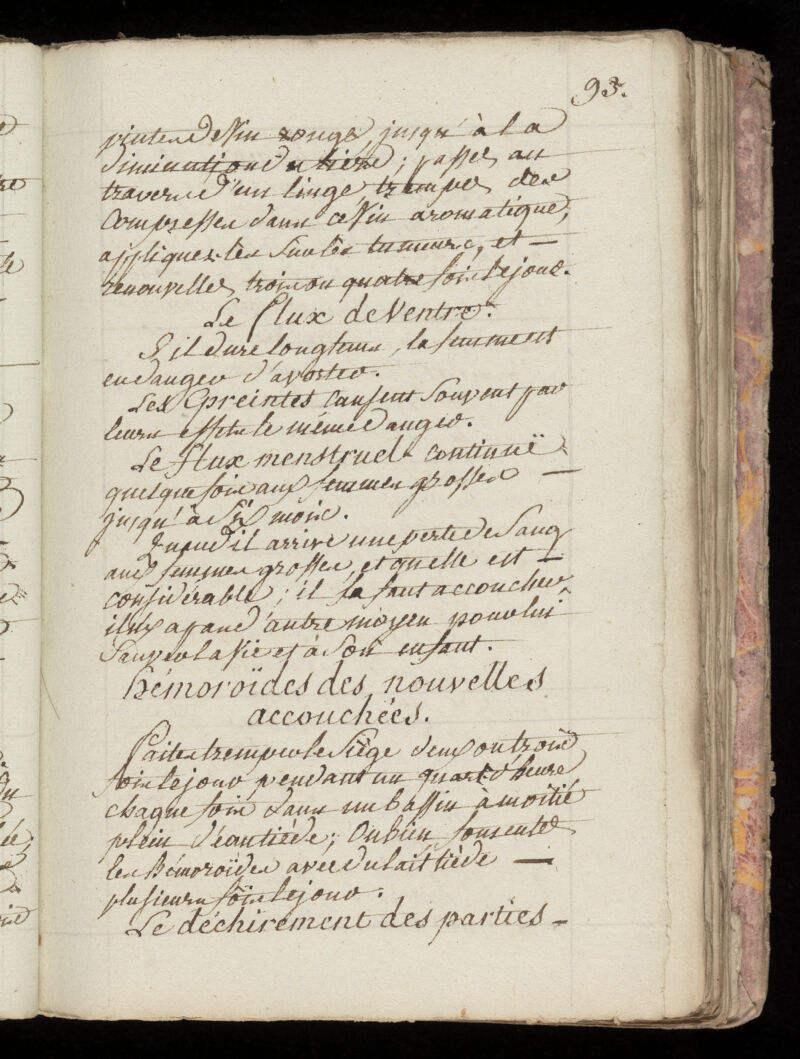 93.
pinte de Vin rouge jusqu'à la
diminution du tiers; passez au
travers d'un linge, trempez des
Compresses dans ce Vin aromatique,
appliquez les Sur les tumeurs, et —
renouvellez trois ou quatre fois le jour.
Le Flux de Ventre.
S'il dure longtems, la femme est
en danger d'avorter.
Les Epreintes causent Souvent par
leurs effets le même danger.
Le flux menstruel continuë
quelque fois aux femmes grosses —
jusqu'à Six mois.
Quand il arrive une perte de Sang
aux femmes grosses, et qu'elle est —
considérable; il la faut accoucher
il n'y a pas d'autre moyen pour lui
Sauver la Vie et à Son enfant.
Hémoroïdes des nouvelles
accouchées.
Faites tremper le Siège deux ou trois
fois le jour pendant un quart d'heure
chaque fois dans un bassin à moitié
plein d'eau tiède; Ou bien fomentez
les Hémoroïdes avec du lait tiède —
plusieurs fois le jour.
Le déchirement des parties —